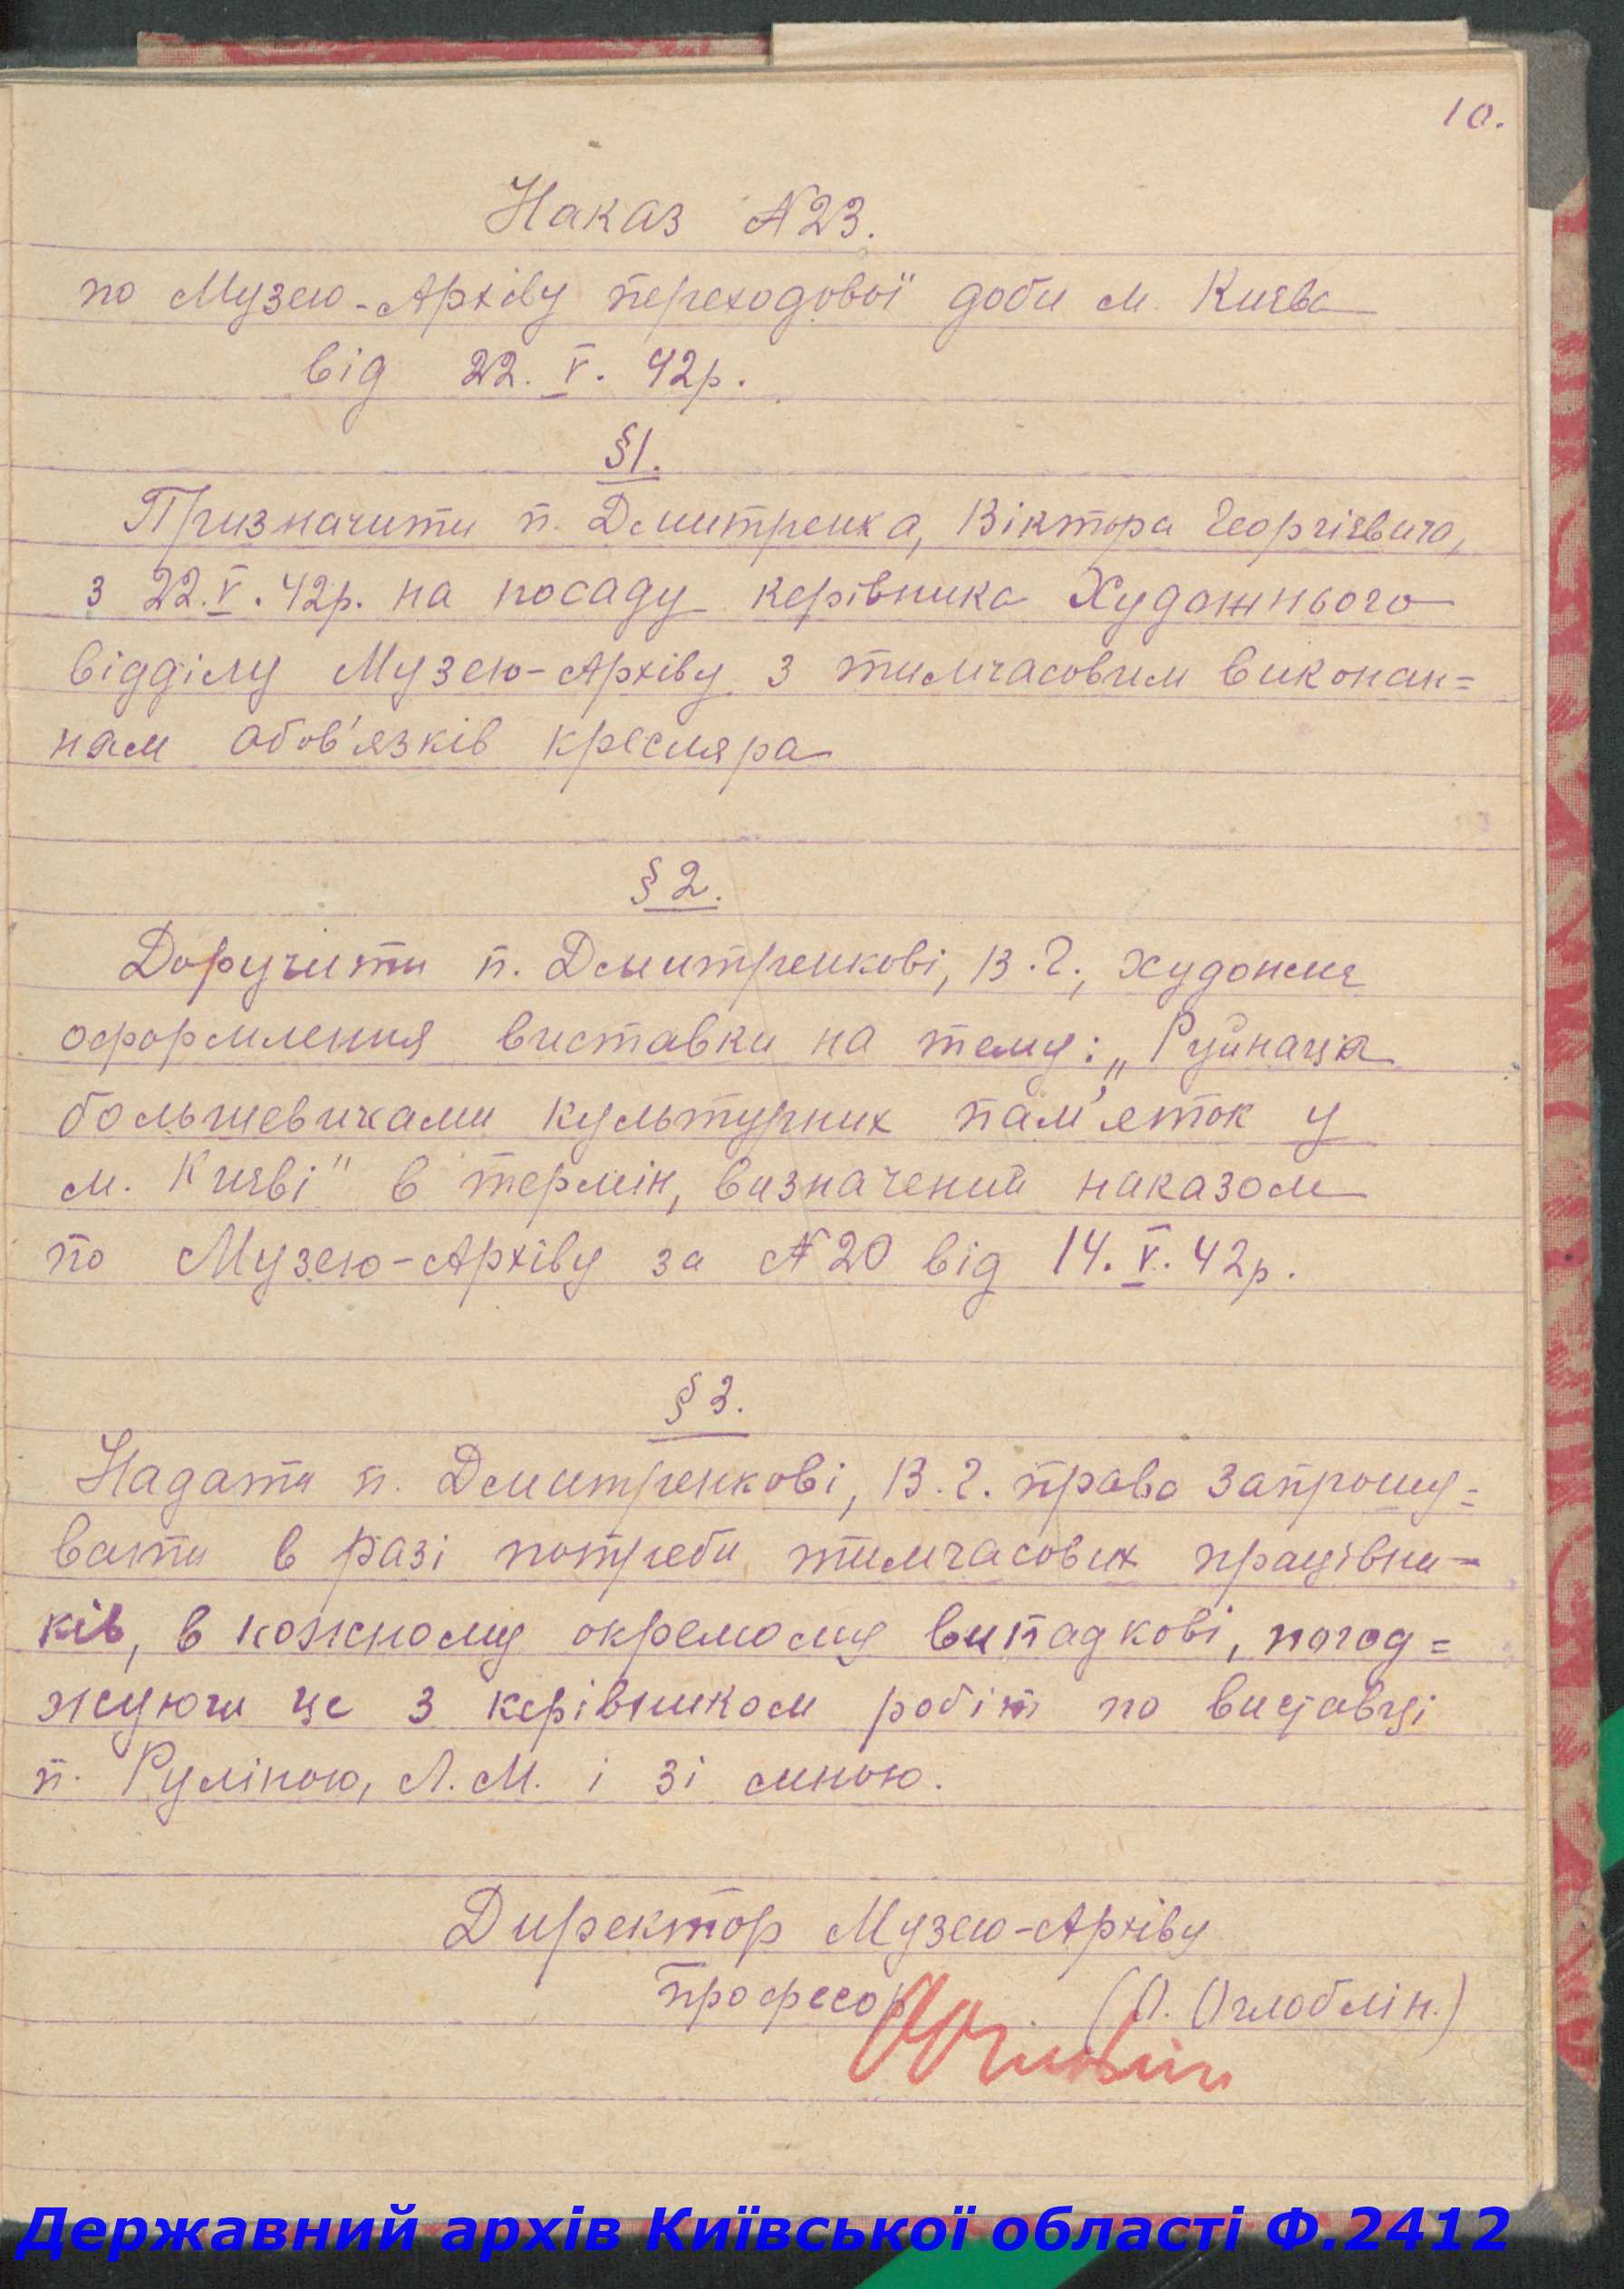 10.
Наказ №23.
по Музею-Архіву переходової доби м. Києва
від 22. V. 42р.
§1.
Призначити п. Дмитренка, Віктора Георгієвича,
з 22. V. 42р. на посаду керівника Художнього
відділу Музею-Архіву з тимчасовим виконан=
ням обов'язків кресляра
§ 2.
Доручити п. Дмитренкові, В. Г., художнє
оформлення виставки на тему: „Руйнація
большевиками культурних пам'яток у
м. Києві" в термін, визначений наказом
по Музею-Архіву за №20 від 14. V. 42р.
§ 3.
Надати п. Дмитренкові, В. Г. право запрошу=
вати в разі потреби тимчасових працівни-
ків, в кожному окремому випадкові, погод=
жуючи це з керівником робіт по виставці
п. Руліною, Л. М. і зі мною.
Директор Музею-Архіву
професор (О. Оглоблін.)
Державний архів Київської області Ф.2412